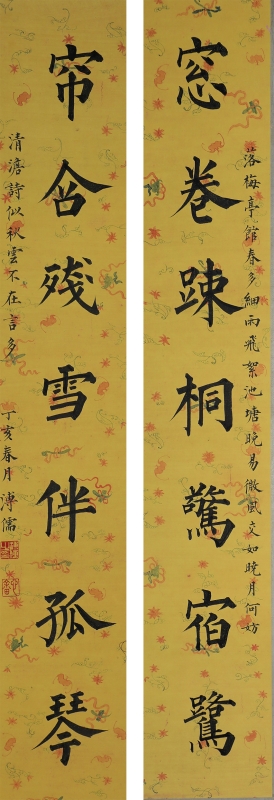 窓卷踈桐驚宿鷺
落梅亭館春多細雨飛絮池塘晚易微風交如曉月何妨
帘含殘雪伴孤琴
清澹詩似秋雲不在言多
丁亥春月溥儒